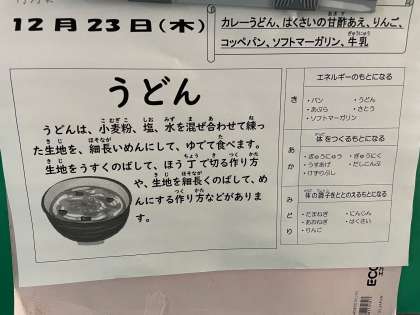 12月23日(木)
カレーうどん、はくさいの甘酢あえ、りんご、
コッペパン、ソフトマーガリン、牛乳
うどん
うどんは、小麦粉、塩、水を混ぜ合わせて練っ
た生地を、細長いめんにして、ゆでて食べます。
生地をうすくのばして、ほう丁で切る作り方
や、生地を細長くのばして、め
んにする作り方などがありま
す。
き
エネルギーのもとになる
・パン ・うどん
・あぶら ・さとう
・ソフトマーガリン
あか
体をつくるもとになる
・ぎゅうにゅう ・ぎゅうにく
・うすあげ ・だしこんぶ
・けずりぶし
みどり
体の調子をととのえるもとになる
・たまねぎ ・にんじん
・あおねぎ ・はくさい
・りんご
ECO